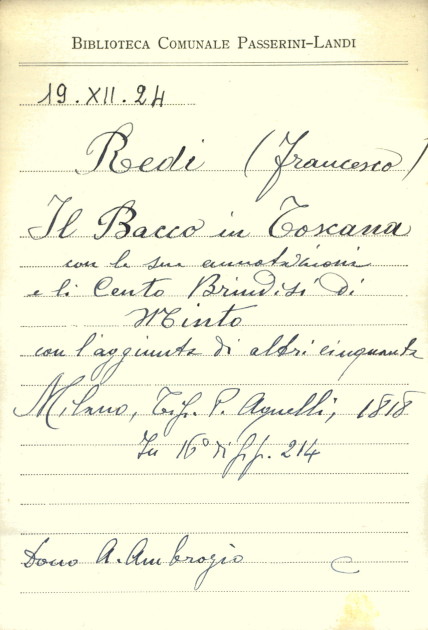 BIBLIOTECA COMUNALE PASSERINI-LANDI
19.XII.24
Redi (Francesco)
Il Bacco in Toscana
con le sue annotazioni
e li Cento Brindisi di
Minto
con l'aggiunta di altri cinquanta
Milano, Tip. P. Agnelli, 1818
In 16° di pp. 214
Dono A. Ambrogio
C